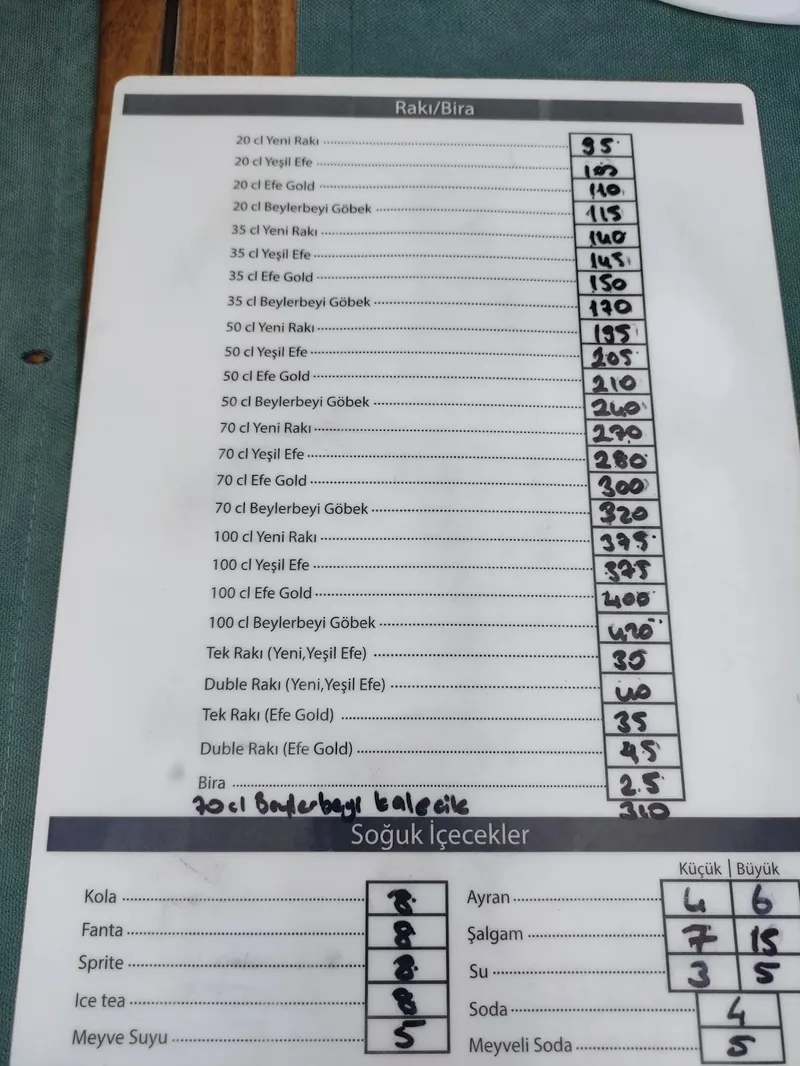 Rakı/Bira
20 cl Yeni Rakı 95
20 cl Yeşil Efe 100
20 cl Efe Gold 110
20 cl Beylerbeyi Göbek 115
35 cl Yeni Rakı 140
35 cl Yeşil Efe 145
35 cl Efe Gold 150
35 cl Beylerbeyi Göbek 170
50 cl Yeni Rakı 195
50 cl Yeşil Efe 205
50 cl Efe Gold 210
50 cl Beylerbeyi Göbek 240
70 cl Yeni Rakı 270
70 cl Yeşil Efe 280
70 cl Efe Gold 300
70 cl Beylerbeyi Göbek 320
100 cl Yeni Rakı 375
100 cl Yeşil Efe 375
100 cl Efe Gold 400
100 cl Beylerbeyi Göbek 420
Tek Rakı (Yeni,Yeşil Efe) 30
Duble Rakı (Yeni,Yeşil Efe) 40
Tek Rakı (Efe Gold) 35
Duble Rakı (Efe Gold) 45
Bira 25
70 cl Beylerbeyi kalecik 310
Soğuk İçecekler
Küçük | Büyük
Kola 8 Ayran 4 6
Fanta 8 Şalgam 7 15
Sprite 8 Su 3 5
Ice tea 8 Soda 4
Meyve Suyu 5 Meyveli Soda 5